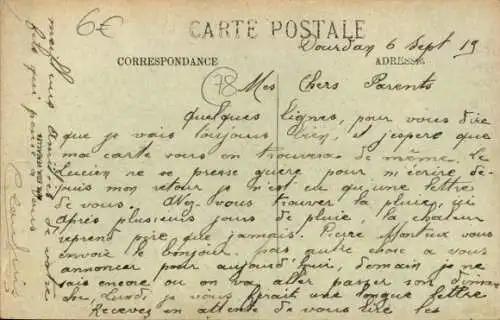 6€
CARTE POSTALE
Dourdan 6 Sept 19
CORRESPONDANCE
ADRESSE
78
Mes Chers Parents
quelques lignes, pour vous dire
que je vais toujours bien, il j'espere que
ma carte vous en trouvera de même. le
Lucien ne se presse guere pour m'ecrire de-
puis mon retour je n'ai eu qu'une lettre
de vous. Avez-vous trouver la pluie, ici
après plusieurs jours de pluie, la chaleur
reprend pire que jamais.
envoie le bonjour. pas autre chose a vous
annoncer pour aujourd'hui, demain je ne
sais encore ou on va aller passer son diman
che, Lundi je vous ferait une longue lettre
Recevez en attente de vous lire les
meilleurs amities de votre
fils qui pense a vous